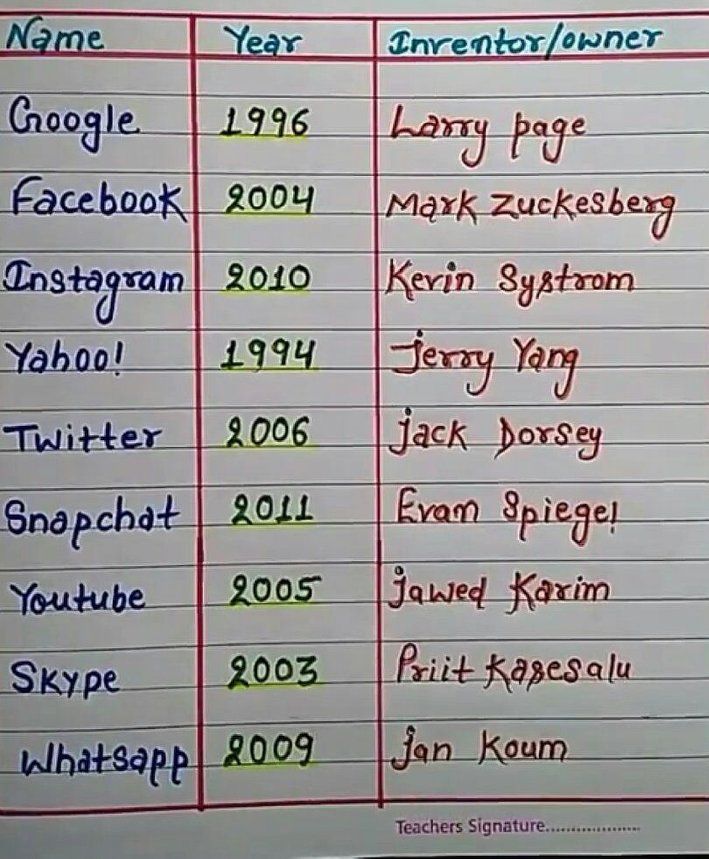 Name Year Inventor/owner
Google 1996 Larry page
Facebook 2004 Mark Zuckesberg
Instagram 2010 Kevin Systrom
Yahoo! 1994 Jerry Yang
Twitter 2006 Jack Dorsey
Snapchat 2011 Evam Spiegel
Youtube 2005 Jawed Karim
Skype 2003 Priit Kasesalu
Whatsapp 2009 Jan Koum
Teachers Signature...................